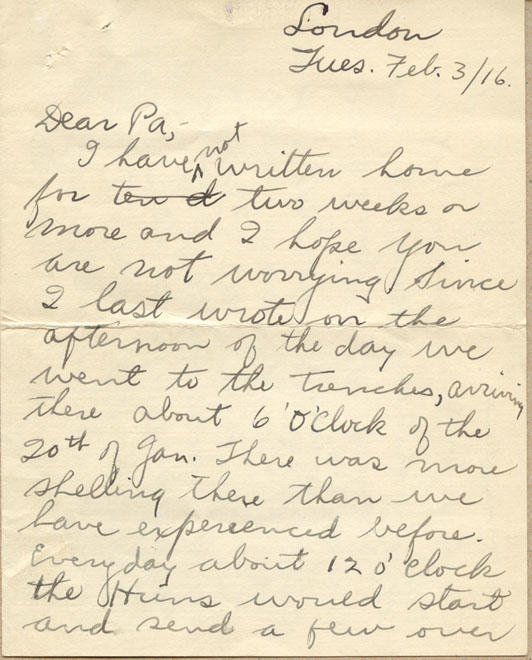 London
Tues. Feb. 3/16.
Dear Pa,-
I have not written home
for ten d two weeks or
more and I hope you
are not worrying. Since
I last wrote on the
afternoon of the day we
went to the trenches, arriving
there about 6 'O'Clock of the
20th of Jan. There was more
shelling there than we
have experienced before.
Everyday about 12 o'clock
the Huns would start
and send a few over